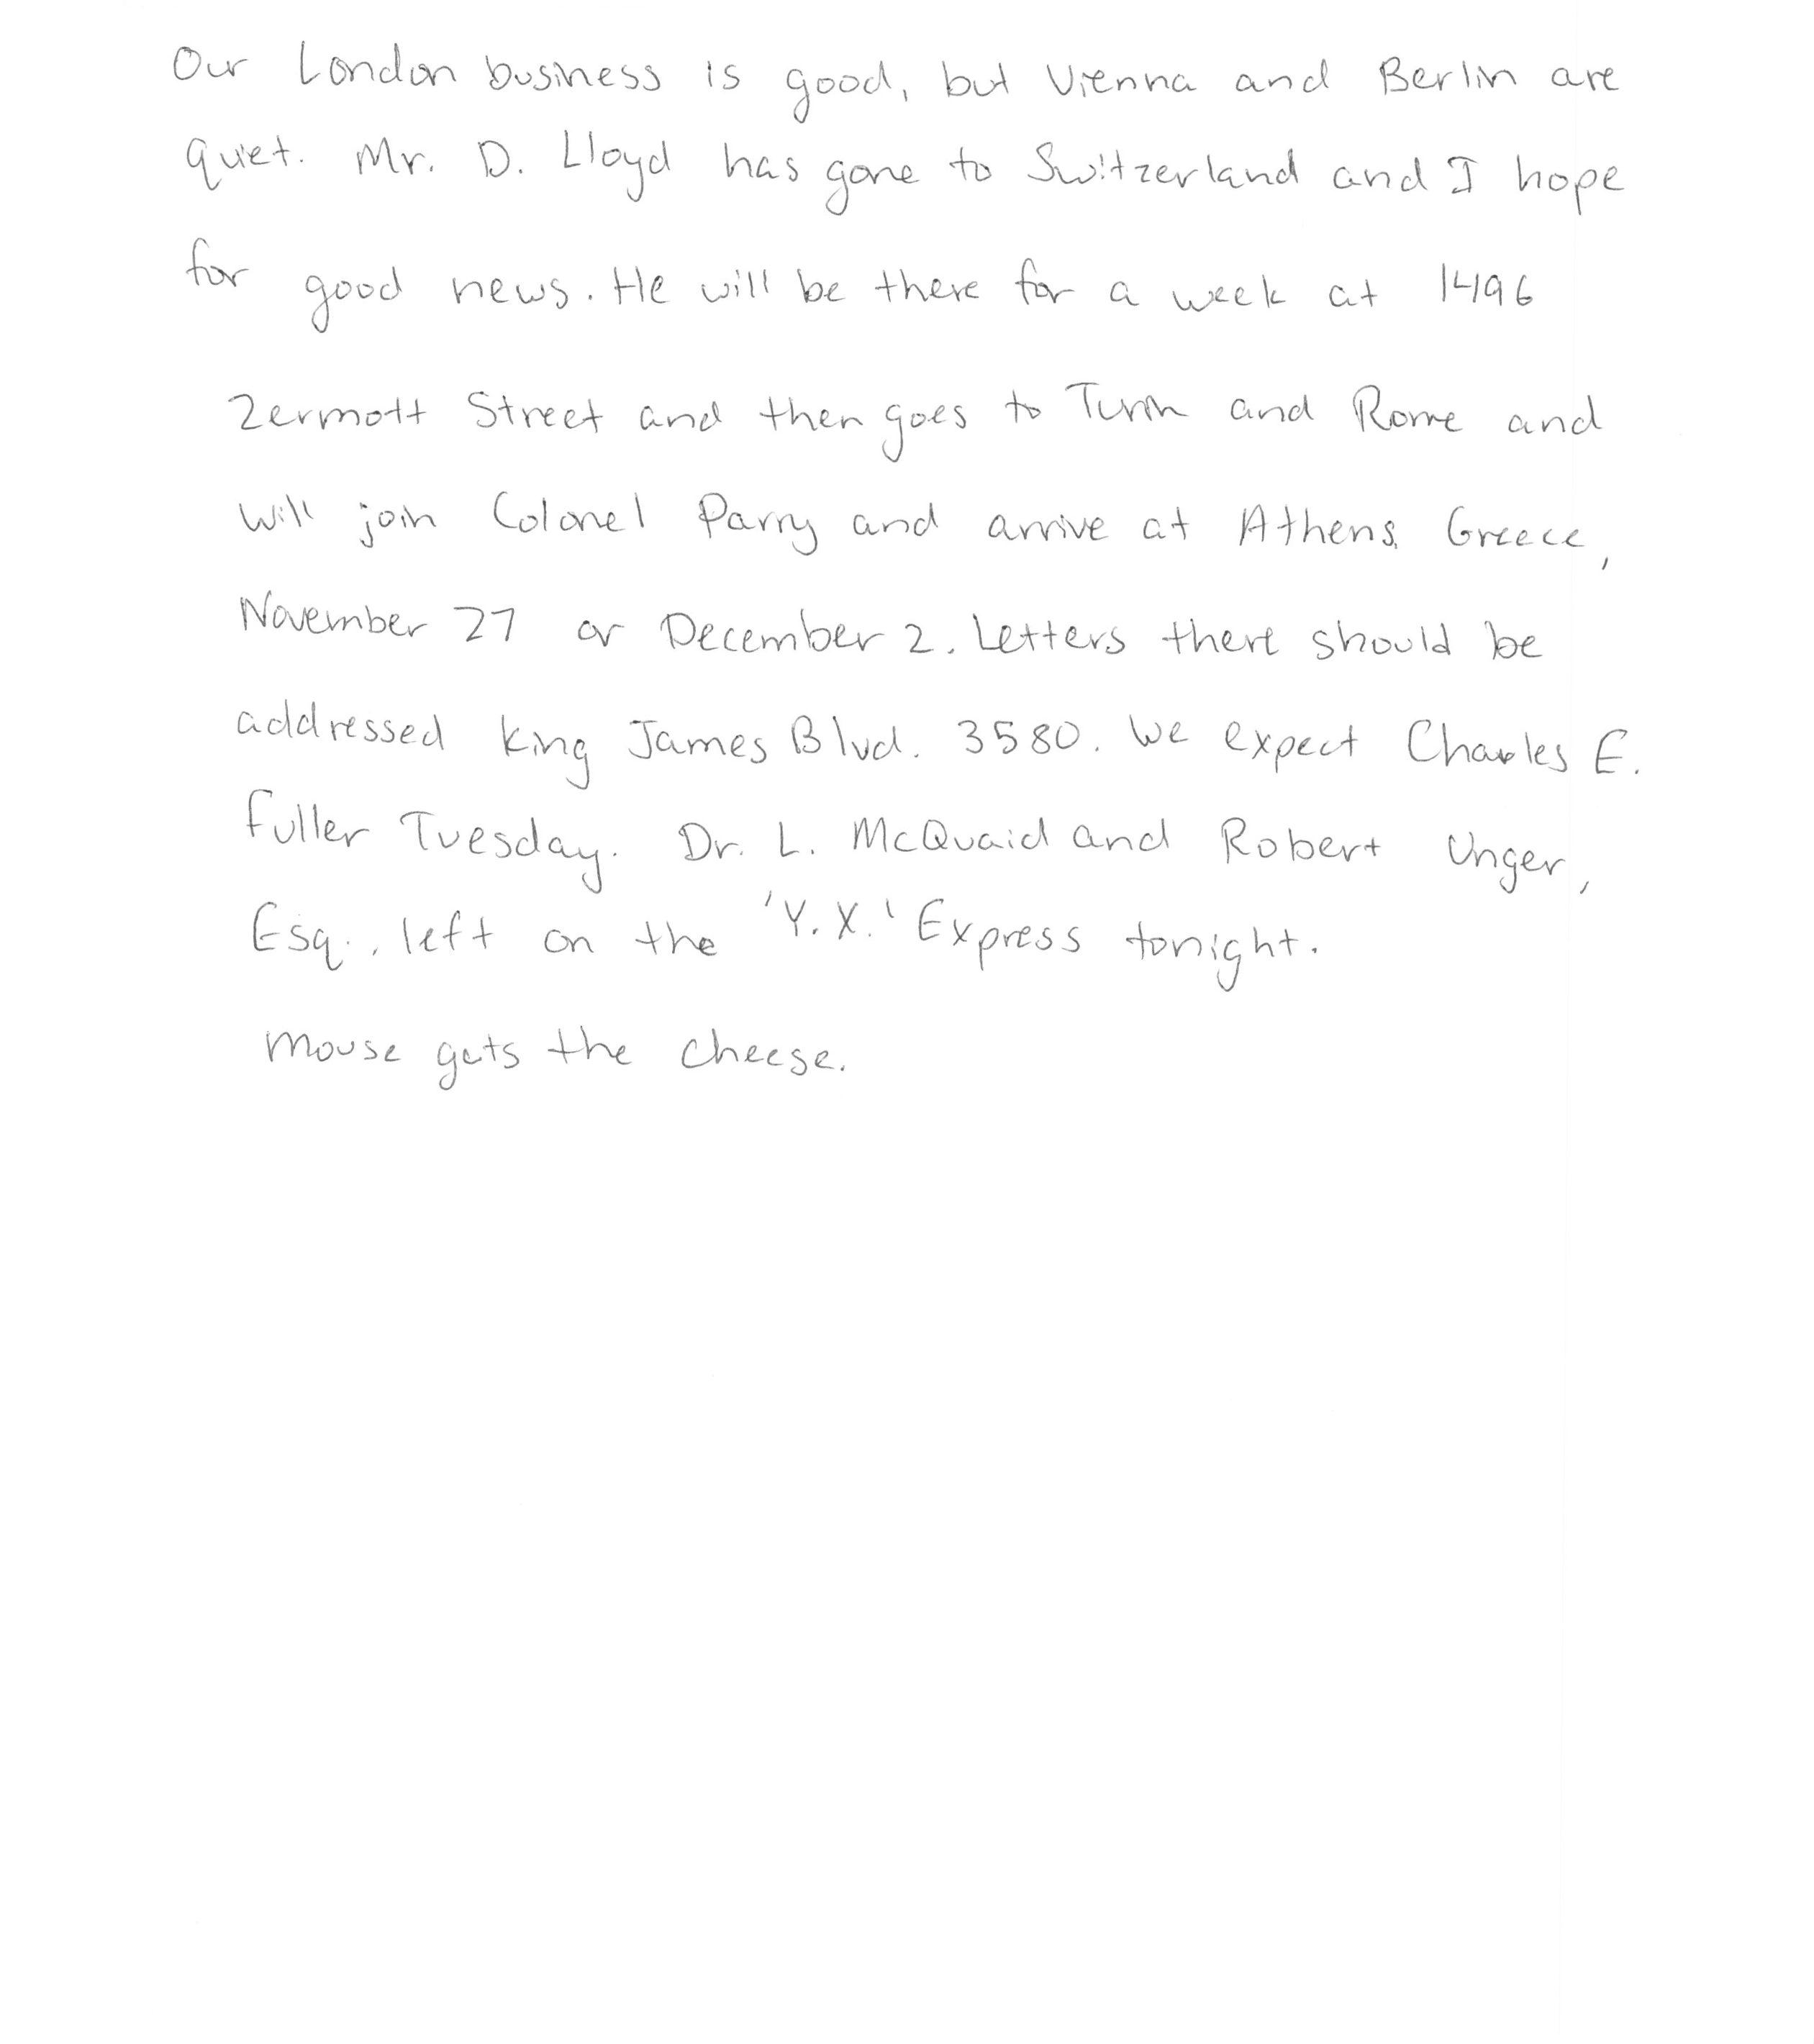 Our London business is good, but Vienna and Berlin are
quiet. Mr. D. Lloyd has gone to Switzerland and I hope
for good news. He will be there for a week at 1496
Zermott Street and then goes to Turin and Rome and
will join Colonel Parry and arrive at Athens, Greece,
November 27 or December 2. Letters there should be
addressed King James Blvd. 3580. We expect Charles E.
Fuller Tuesday. Dr. L. McQuaid and Robert Unger,
Esq., left on the 'Y.X.' Express tonight.
Mouse gets the cheese.